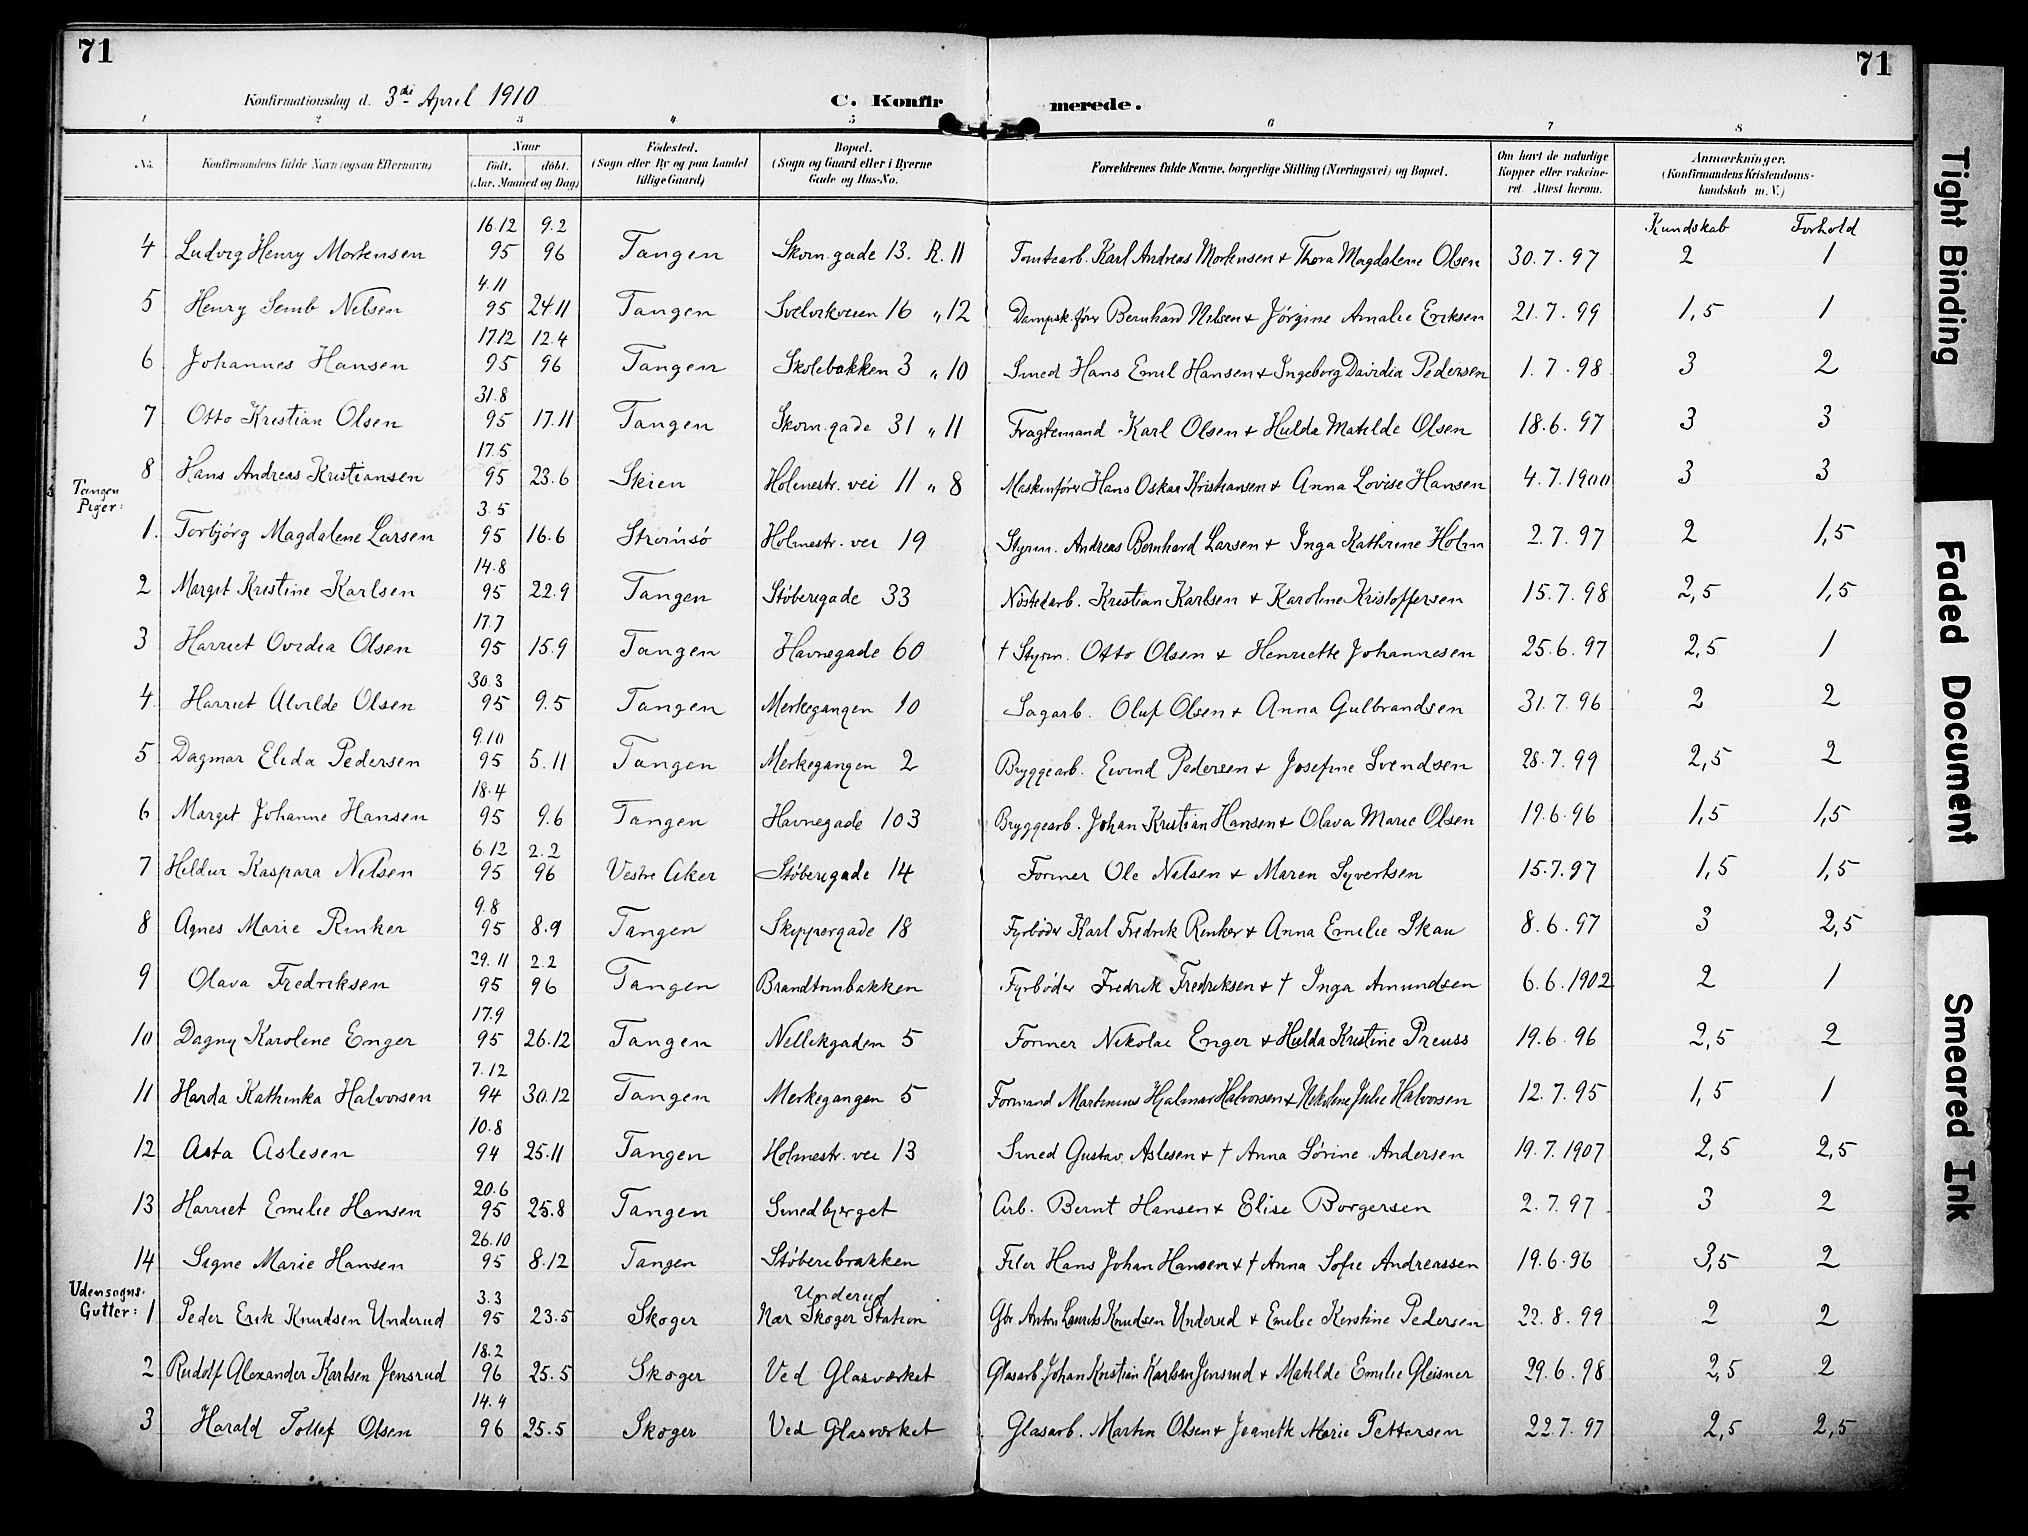 71
71
Konfirmationsdag d. 3die April 1910
C. Konfirmerede.
1 2 3 4 5 6 7 8
No. Konfirmandens fulde Navn (ogsaa Efternavn) Naar födt. döbt. (Aar, Maaned og Dag) Födested. (Sogn eller By og paa Landet tillige Gaard) Bopæl. (Sogn og Gaard eller i Byerne Gade og Hus-No. Forældrenes fulde Navne, borgerlige Stilling (Næringsvei) og Bopæl. Om havt de naturlige Kopper eller vakcineret. Attest herom. Anmærkninger. (Konfirmandens Kristendomskundskab m. V.)
Kundskab Forhold
4 Ludvig Henry Mortensen 16.12 95 9.2 96 Tangen Skom.gade 13. R. 11 Tomtearb. Karl Andreas Mortensen + Thora Magdalene Olsen 30.7.97 2 1
5 Henry Semb Nilsen 4.11 95 24.11 Tangen Svelvikveien 16 " 12 Dampsk.fører Bernhard Nilsen + Jørgine Amalie Eriksen 21.7.99 1,5 1
6 Johannes Hansen 17.12 95 12.4 96 Tangen Skolebakken 3 " 10 Smed Hans Emil Hansen + Ingeborg Davidia Pedersen 1.7.98 3 2
7 Otto Kristian Olsen 31.8 95 17.11 Tangen Skom.gade 31 " 11 Fragtemand Karl Olsen + Hulda Matilde Olsen 18.6.97 3 3
8 Hans Andreas Kristiansen 17.5 95 23.6 Skien Holmestr. vei 11 " 8 Maskinfører Hans Oskar Kristiansen + Anna Lovise Hansen 4.7.1900 3 3
Tangen
Piger:
1. Torbjørg Magdalene Larsen 3.5 95 16.6 Strømsø Holmestr. vei 19 Styrm. Andreas Bernhard Larsen + Inga Kathrine Holm 2.7.97 2 1,5
2 Margit Kristine Karlsen 14.8 95 22.9 Tangen Støberigade 33 Nostedarb. Kristian Karlsen + Karoline Kristoffersen 15.7.98 2,5 1,5
3 Harriet Ovidia Olsen 17.7 95 15.9 Tangen Havnegade 60 † Styrm. Otto Olsen + Henriette Johannesen 25.6.97 2,5 1
4 Harriet Alvilde Olsen 30.3 95 9.5 Tangen Merkegangen 10 Sagarb. Oluf Olsen + Anna Gulbrandsen 31.7.96 2 2
5 Dagmar Elida Pedersen 9.10 95 5.11 Tangen Merkegangen 2 Bryggearb. Eivind Pedersen + Josefine Svendsen 28.7.99 2,5 2
6 Margit Johanne Hansen 18.4 95 9.6 Tangen Havnegade 103 Bryggearb. Johan Kristian Hansen + Olava Marie Olsen 19.6.96 1,5 1,5
7 Hildur Kaspara Nilsen 6.12 95 2.2 96 Vestre Aker Støberigade 14 Former Ole Nilsen + Maren Syvertsen 15.7.97 1,5 1,5
8 Agnes Marie Rinker 9.8 95 8.9 Tangen Skippergade 18 Fyrbøder Karl Fredrik Rinker + Anna Emilie Skau 8.6.97 3 2,5
9 Olava Fredriksen 29.11 95 2.2 96 Tangen Brandtombakken Fyrbøder Fredrik Fredriksen + † Inga Amundsen 6.6.1902 2 1
10 Dagny Karoline Enger 17.9 95 26.12 Tangen Nellikgaden 5 Former Nikolai Enger + Hulda Kristine Preuss 19.6.96 2,5 2
11 Harda Kathinka Halvorsen 7.12 94 30.12 Tangen Merkegangen 5 Formand Martinius Hjalmar Halvorsen + Nikoline Julie Halvorsen 12.7.95 1,5 1
12 Asta Aslesen 10.8 94 25.11 Tangen Holmestr. vei 13 Smed Gustav Aslesen + † Anna Sørine Andersen 19.7.1907 2,5 2,5
13 Harriet Emilie Hansen 20.6 95 25.8 Tangen Smedbjerget Arb. Bernt Hansen + Elise Borgersen 2.7.97 3 2
14 Signe Marie Hansen 26.10 95 8.12 Tangen Støberibrakken Filer Hans Johan Hansen + † Anna Sofie Andreassen 19.6.96 3,5 2
Udensogns.
Gutter: 1 Peder Erik Knudsen Underud 3.3 95 23.5 Skoger Underud Nær Skoger Station Gbr Anton Laurits Knudsen Underud + Emilie Kirstine Pedersen 22.8.99 2 2
2 Rudolf Alexander Karlsen Jensrud 18.2 96 25.5 Skoger Ved Glasværket Glasarb. Johan Kristian Karlsen Jensrud + Matilde Emilie Gleisner 29.6.98 2,5 2
3 Harald Tollef Olsen 14.4 96 25.5 Skoger Ved Glasværket Glasarb. Martin Olsen + Jeanette Marie Pettersen 22.7.97 2,5 2,5
Tight Binding
Faded Document
Smeared Ink